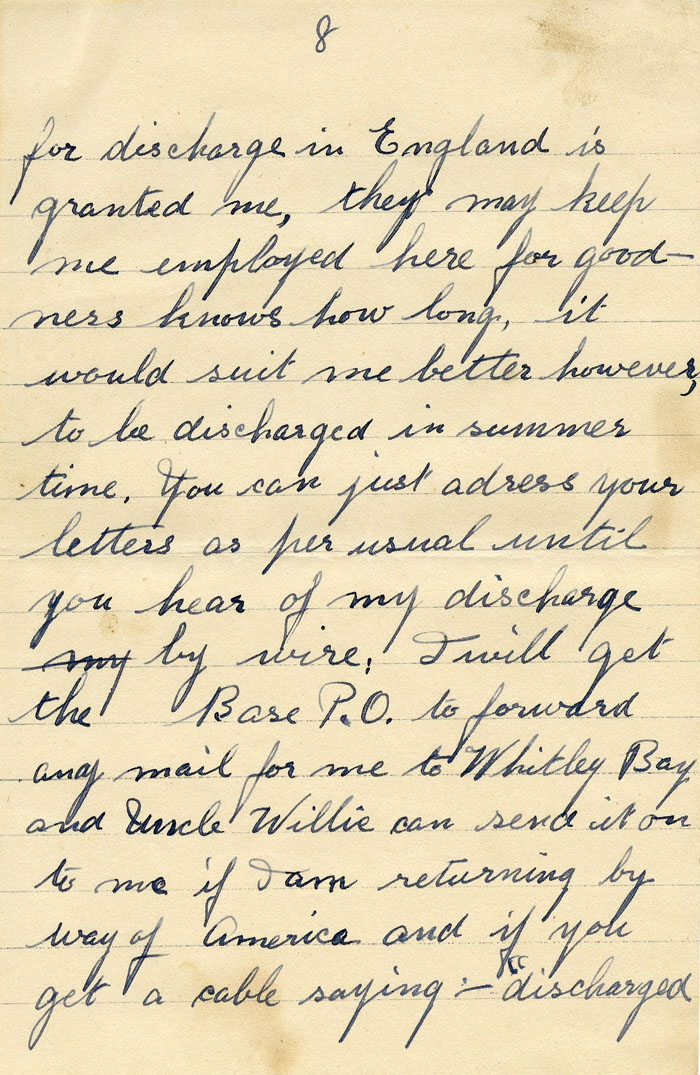 8
for discharge in England is
granted me, they may keep
me employed here for good-
ness knows how long, it
would suit me better however,
to be discharged in summer
time. You can just adress your
letters as per usual until
you hear of my discharge
my by wire; I will get
the Base P.O. to forward
any mail for me to Whitley Bay
and Uncle Willie can send it on
to me if I am returning by
way of America and if you
get a cable saying :- "discharged